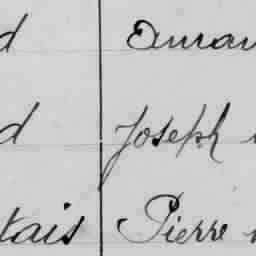 d Duran
d Joseph
tais Pierre